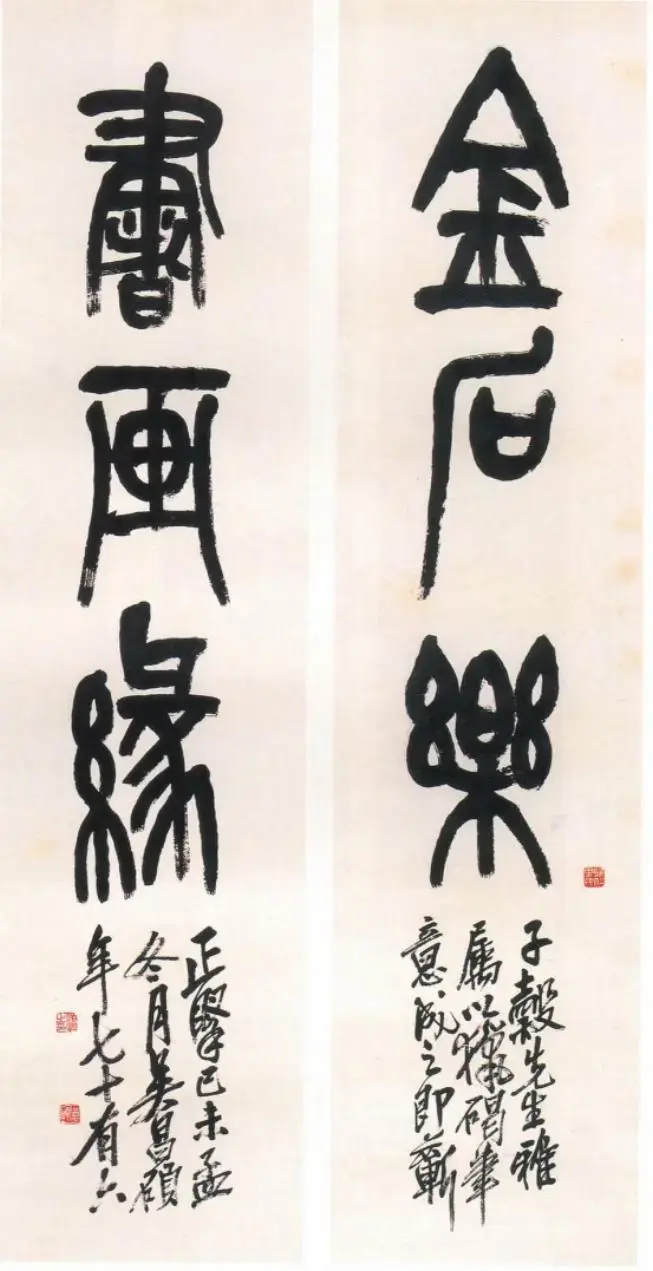 金石樂
書画緣
子穀先生雅
屬以獵碣筆
意成之即蘄
正擘己未孟
冬月吳昌碩
年七十有六